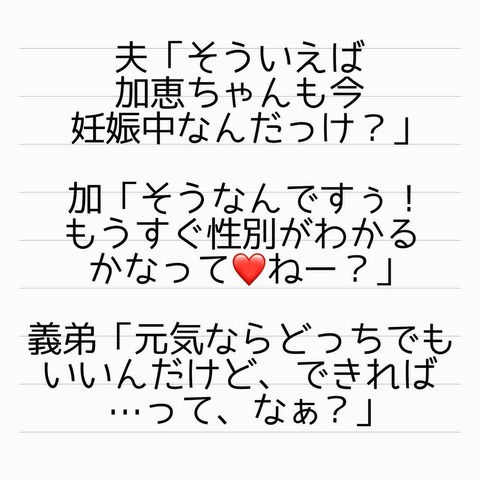 夫「そういえば
加恵ちゃんも今
妊娠中なんだっけ？」
加「そうなんですぅ！
もうすぐ性別がわかる
かなって❤️ねー？」
義弟「元気ならどっちでも
いいんだけど、できれば
…って、なぁ？」